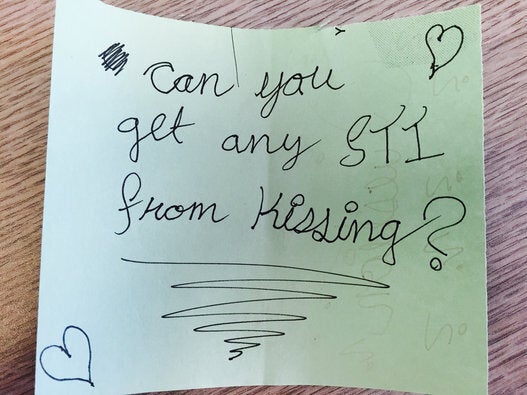 Can you
get any STI
from Kissing?